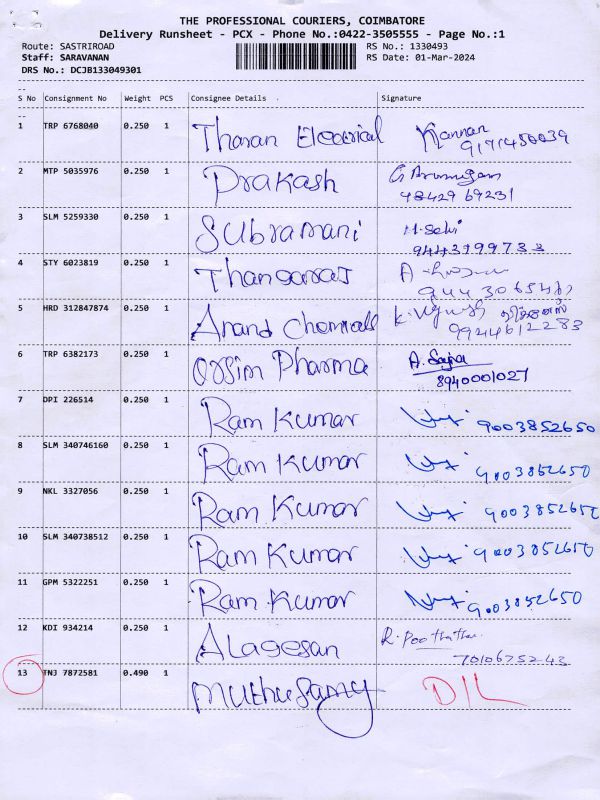 THE PROFESSIONAL COURIERS, COIMBATORE
Delivery Runsheet - PCX - Phone No.:0422-3505555 - Page No.:1
Route: SASTRIROAD RS No.: 1330493
Staff: SARAVANAN RS Date: 01-Mar-2024
DRS No.: DCJB133049301
S No Consignment No Weight PCS Consignee Details Signature
1 TRP 6768040 0.250 1 Tharan Electrical Kannan
2 MTP 5035976 0.250 1 Prakash G. Arumugam
98429 69231
3 SLM 5259330 0.250 1 Subramani
9443999733
4 STY 6023819 0.250 1 Thangaraj A
5 HRD 312847874 0.250 1 Anand Chemicals K.
9944612283
6 TRP 6382173 0.250 1 Ossim Pharma A.
8940001027
7 DPI 226514 0.250 1 Ram Kumar 9003852650
8 SLM 340746160 0.250 1 Ram Kumar 9003852650
9 NKL 3327056 0.250 1 Ram Kumar 9003852650
10 SLM 340738512 0.250 1 Ram Kumar 9003852650
11 GPM 5322251 0.250 1 Ram Kumar 9003852650
12 KDI 934214 0.250 1 Alagesan R.
7010675243
13 TNJ 7872581 0.490 1 Muthusamy D/L